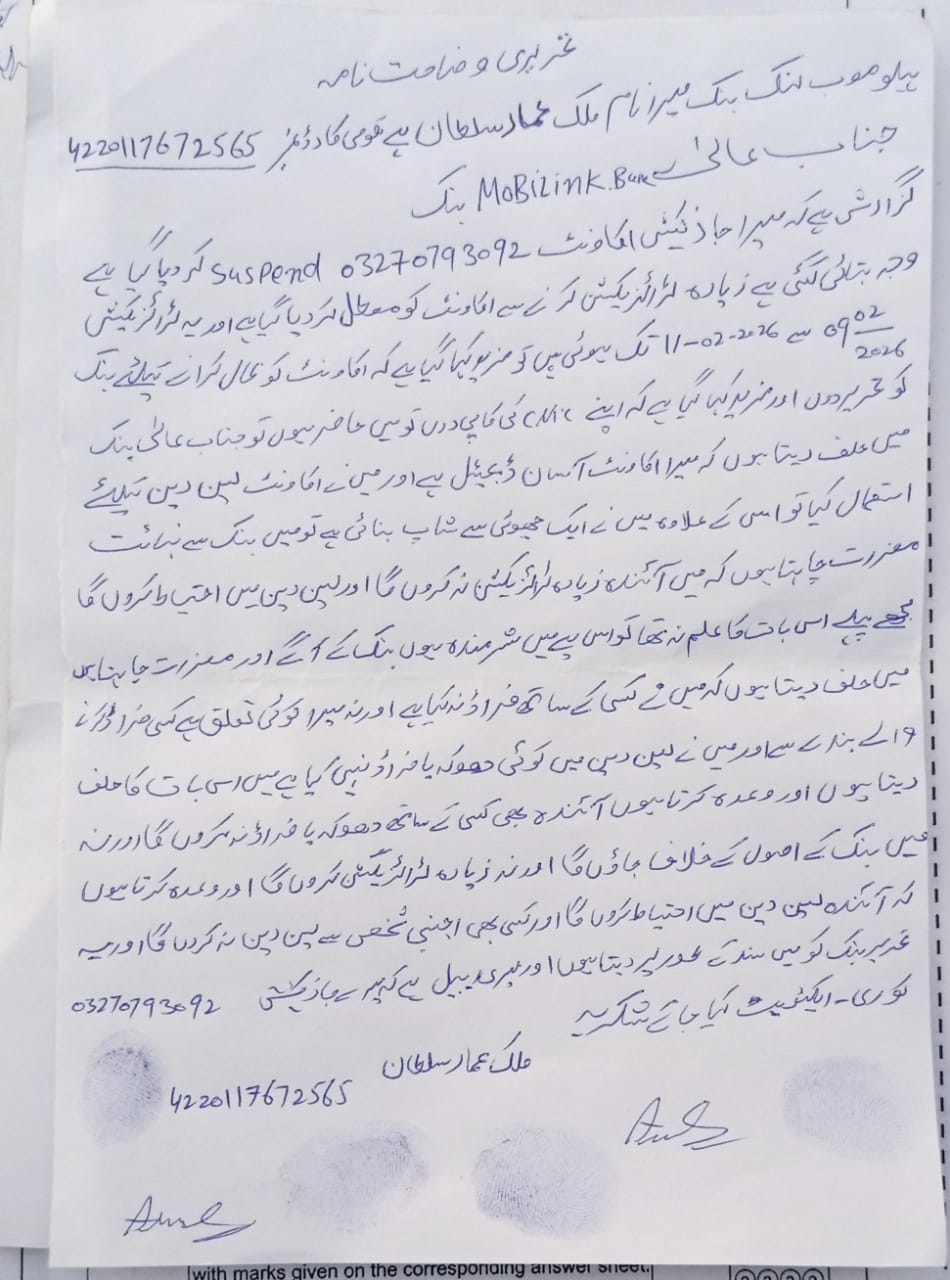 تحریری وضاحت نامہ
ہیلو موب لنک بنک میرا نام ملک عمار سلطان ہے قومی کارڈ نمبر 4220117672565
جناب عالیٰ MoBiLink.Bank بنک
گزارش ہے کہ میرا جاز کیش اکاونٹ 03270793092 suspend کر دیا گیا ہے
وجہ بتائی گئی ہے زیادہ ٹرانزیکشن کرنے سے اکاونٹ کو معطل کر دیا گیا ہے اور یہ ٹرانزیکشن
09 02 2026 سے 11-02-2026 تک ہوئی ہیں تو مزید کہا گیا ہے کہ اکاونٹ کو بحال کرانے کیلئے بنک
کو تحریر دوں اور مزید کہا گیا ہے کہ اپنے cnic کی کاپی دوں تو میں حاضر ہوں تو جناب عالی بنک
میں حلف دیتا ہوں کہ میرا اکاونٹ آسان ڈیجیٹل ہے اور میں نے اکاونٹ لین دین کیلئے
استعمال کیا تو اس کے علاوہ میں نے ایک چھوٹی سے شاپ بنائی ہے تو میں بنک سے نہائت
معزرت چاہتا ہوں کہ میں آئندہ زیادہ ٹرانزیکشن نہ کروں گا اور لین دین میں احتیاط کروں گا
مجھے پہلے اس بات کا علم نہ تھا تو اس پے میں شرمندہ ہوں بنک کے آگے اور معزرت چاہتا ہوں
میں حلف دیتا ہوں کہ میں نے کسی کے ساتھ فراڈ نہ کیا ہے اور نہ میرا کوئی تعلق ہے کسی فراڈ کرنے
والے بندے سے اور میں نے لین دین میں کوئی دھوکہ یا فراڈ نہیں کیا ہے میں اس بات کا حلف
دیتا ہوں اور وعدہ کرتا ہوں آئندہ بھی کسی کے ساتھ دھوکہ یا فراڈ نہ کروں گا اور نہ
میں بنک کے اصول کے خلاف جاؤں گا اور نہ زیادہ ٹرانزیکشن کروں گا اور وعدہ کرتا ہوں
کہ آئندہ لین دین میں احتیاط کروں گا اور کسی بھی اجنبی شخص سے لین دین نہ کروں گا اور یہ
تحریر بنک کو میں سند کے طور پر دیتا ہوں اور میری اپیل ہے کہ میرے جاز کیش 03270793092
کو ری-ایکٹیویٹ کیا جائے شکریہ
ملک عمار سلطان
4220117672565
with marks given on the corresponding answer sheet.